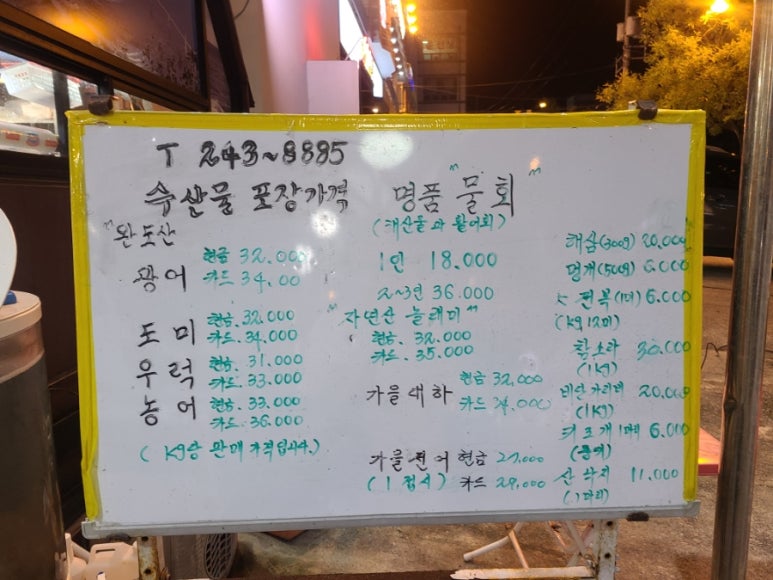 T 243~8885
수산물 포장가격
명품 "물회"
(해산물과 활어회)
1인 18.000
2~3인 36.000
"완도산
광어
현금 32.000
카드 34.00
도미
현금. 32.000
카드. 34.000
우럭
현금. 31.000
카드. 33.000
농어
현금. 33.000
카드. 36.000
(Kg당 판매가격입니다.)
"자연산 놀래미"
현금. 32.000
카드. 35.000
가을대하
현금 32,000
카드 34,000
가을전어 현금
(1접시) 카드 29,000
해삼(300g) 20.000
멍개(500g) 6.000
전복(1미) 6.000
(Kg12미)
참소라 30.000
(1Kg)
비단가리비 20.000
(1Kg)
키조개1마리 6.000
산낙지 11.000
(1마리)